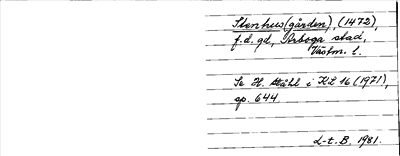 Stenhus(gården), (1472),
f.d. gd, Arboga stad,
Västm. l.
Se H. Ståhl i KL 16 (1971),
sp. 644.
L-t. B. 1981.